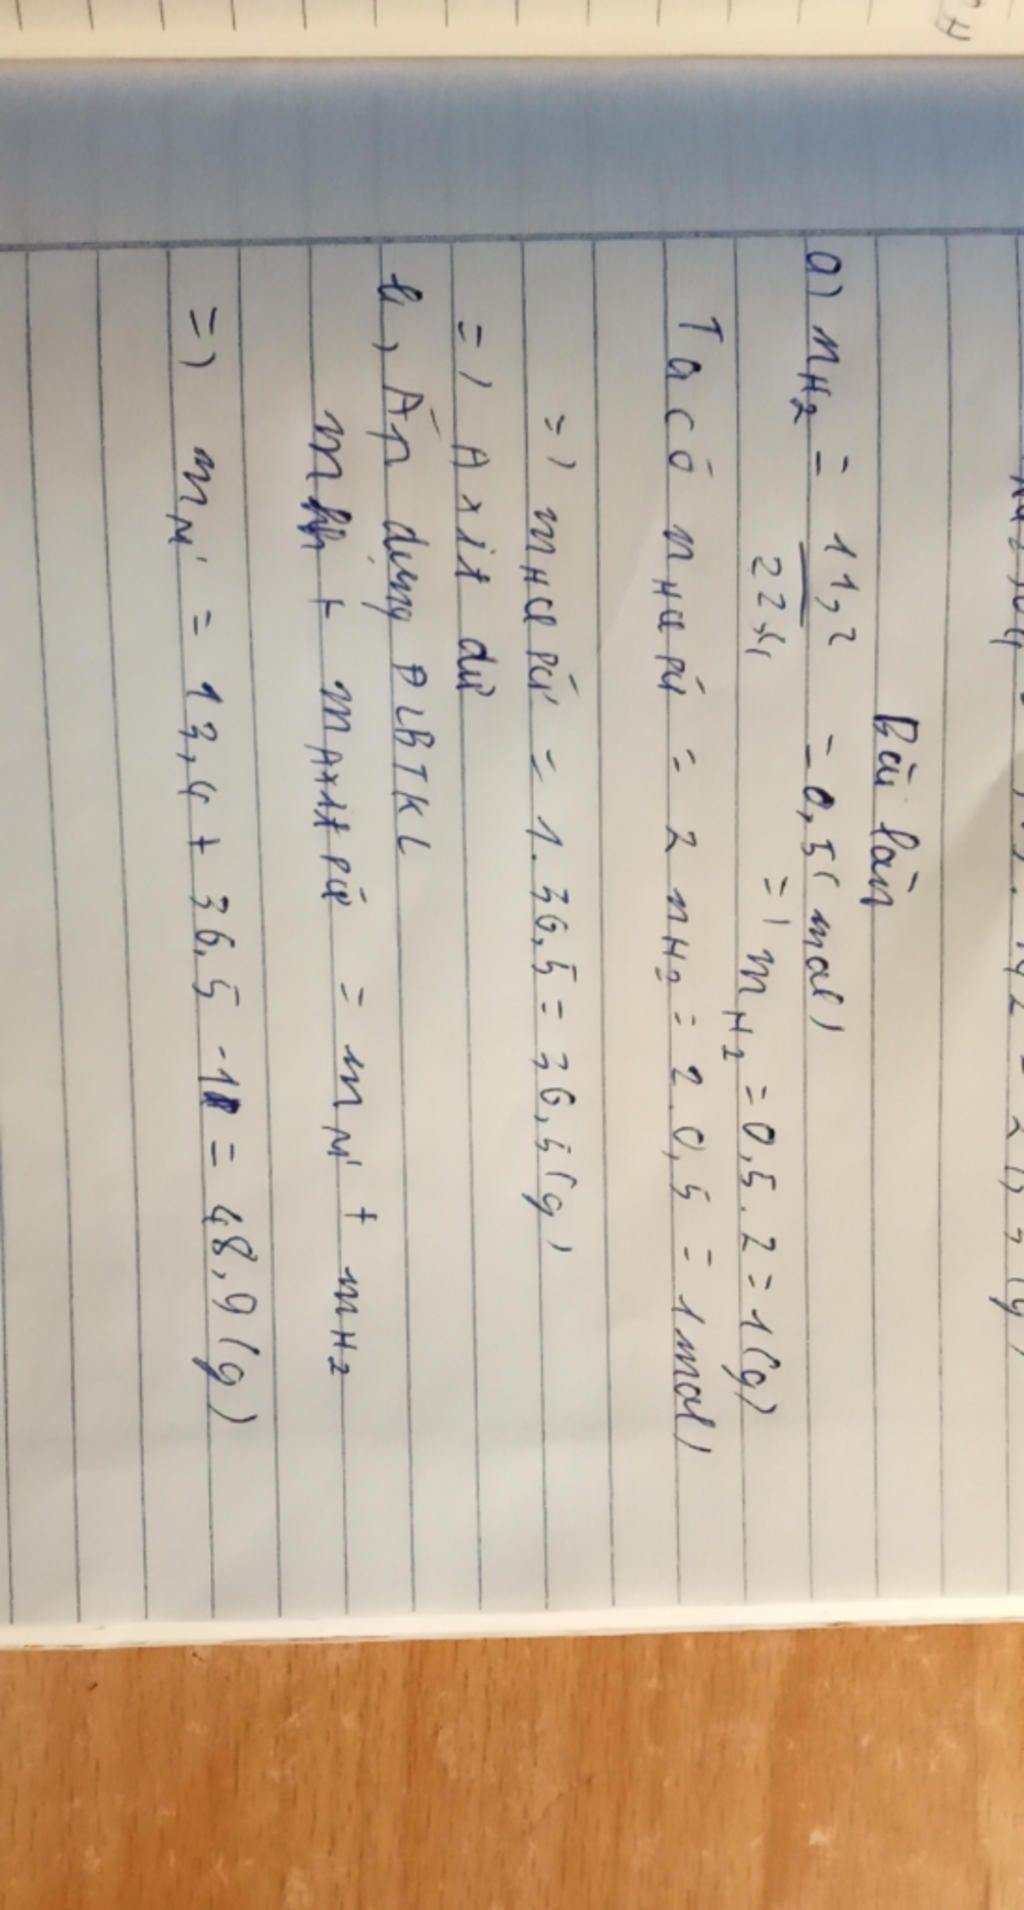 Bài làm
a) nH2 = 11,2 / 22,4 = 0,5 (mol)
=) mH2 = 0,5 . 2 = 1 (g)
Ta có nHCl pứ = 2 nH2 = 2 . 0,5 = 1 mol)
=) mHCl pứ = 1 . 36,5 = 36,5 (g)
=) Axit dư
b, Áp dụng ĐLBTKL
mhh + mAxit pứ = mM' + mH2
=) mM' = 13,4 + 36,5 - 1 = 48,9 (g)